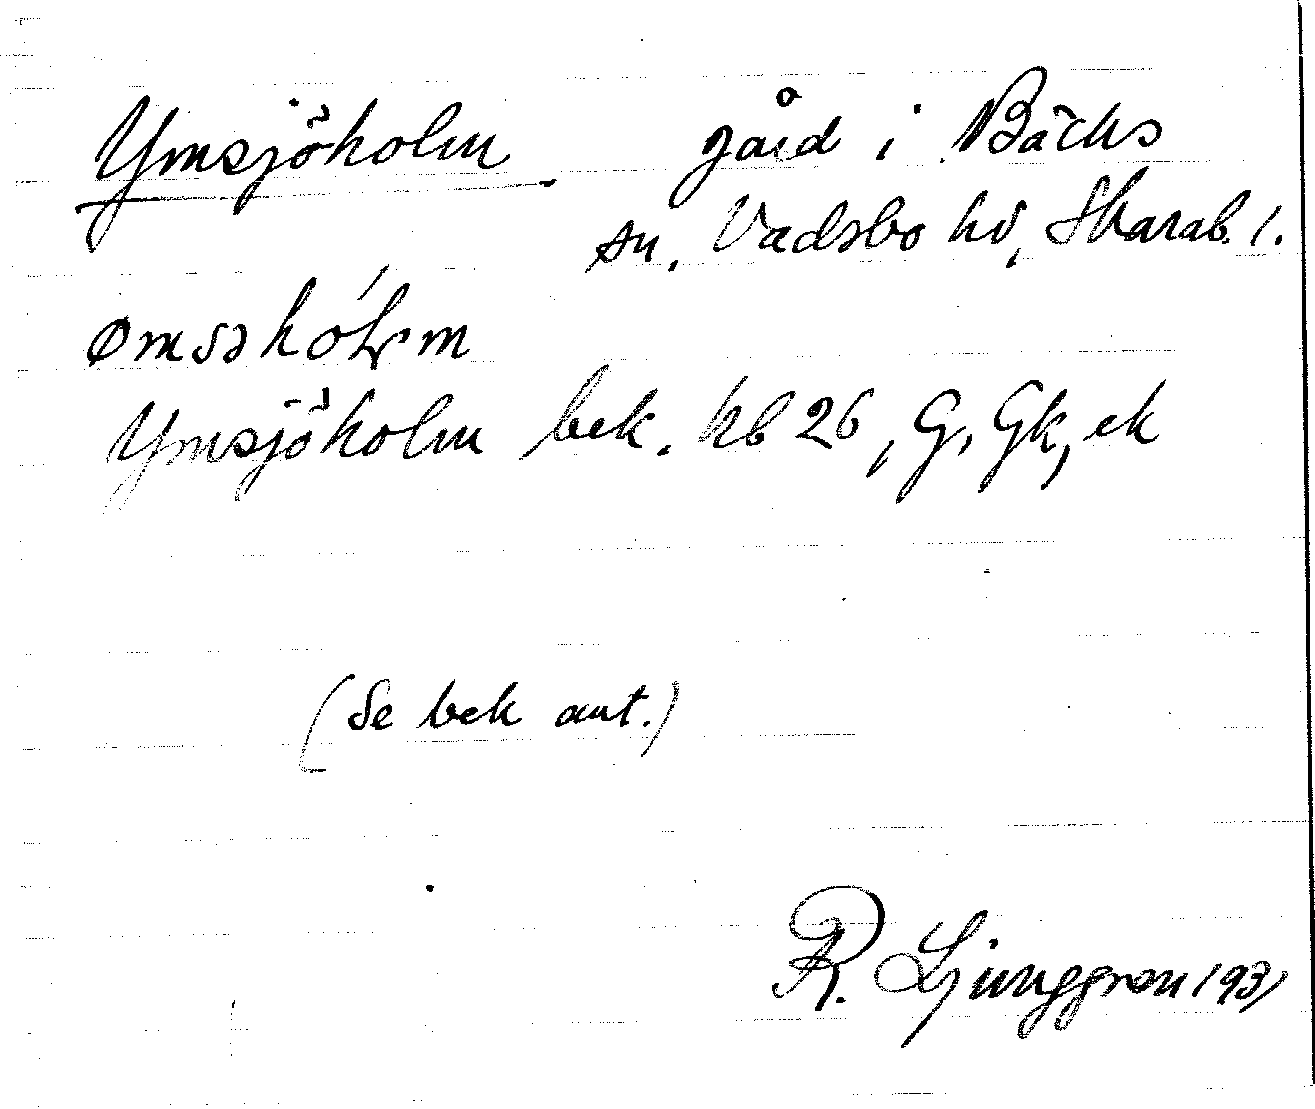 Ymsjöholm gård i Bäcks
sn, Vadsbo hd, Skarab. l.
Ymsjöholm bek. kb 26, G, Gk, ek
(Se bek ant.)
R. Ljunggren 1931